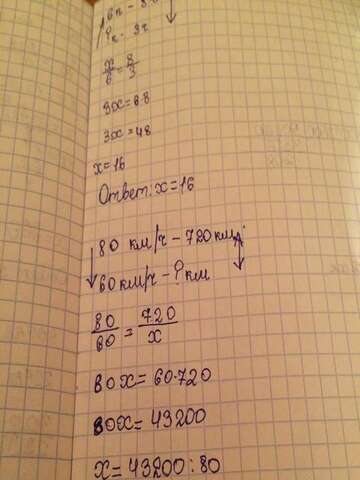 x/6 = 8/3
3x=6·8
3x=48
x=16
Ответ: x=16
80 км/ч – 720 км
60 км/ч – ? км
80/60 = 720/x
80x=60·720
80x=43200
x=43200:80